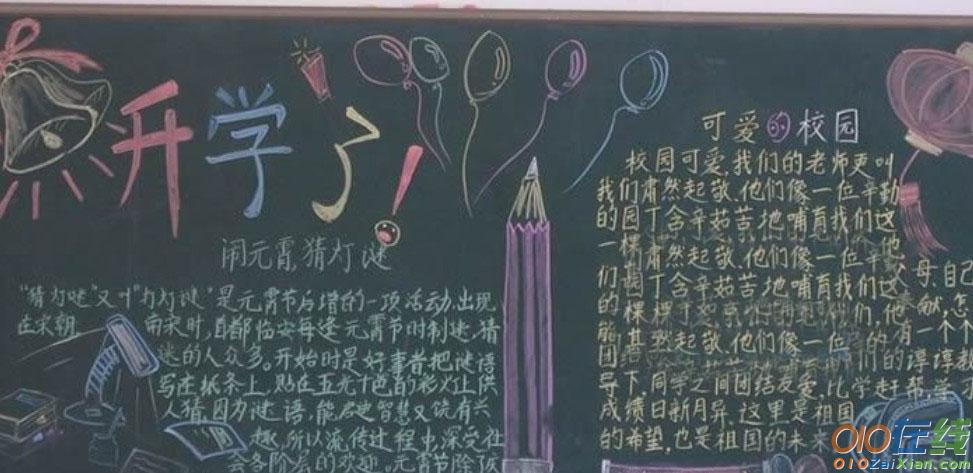 开学了!
闹元宵,猜灯谜
"猜灯谜"又叫"打灯谜"是元宵节后增的一项活动,出现
在宋朝。南宋时,首都临安每逢元宵节时制迷,猜
迷的人众多。开始时是好事者把谜语
写在纸条上,贴在五光十色的彩灯上供
人猜.因为谜语,能启迪智慧又饶有兴
趣,所以流传过程中,深受社
元宵节
可爱的校园
校园可爱,我们的老师更叫
我们肃然起敬.他们像一位辛勤
的园丁含辛茹苦地哺育我们这
一棵肃然起敬.他们像一位辛 母.自己
们园丁含辛茹苦地哺育我们这
的棵 们,他 献,怎
然起敬.他们像一位 的有一个个
团 们的谆谆教
导下,同学之间团结友爱,比学赶帮,学习
成绩日新月异.这里是祖国
的希望,也是祖国的未来
010在线
010zaiXian.com